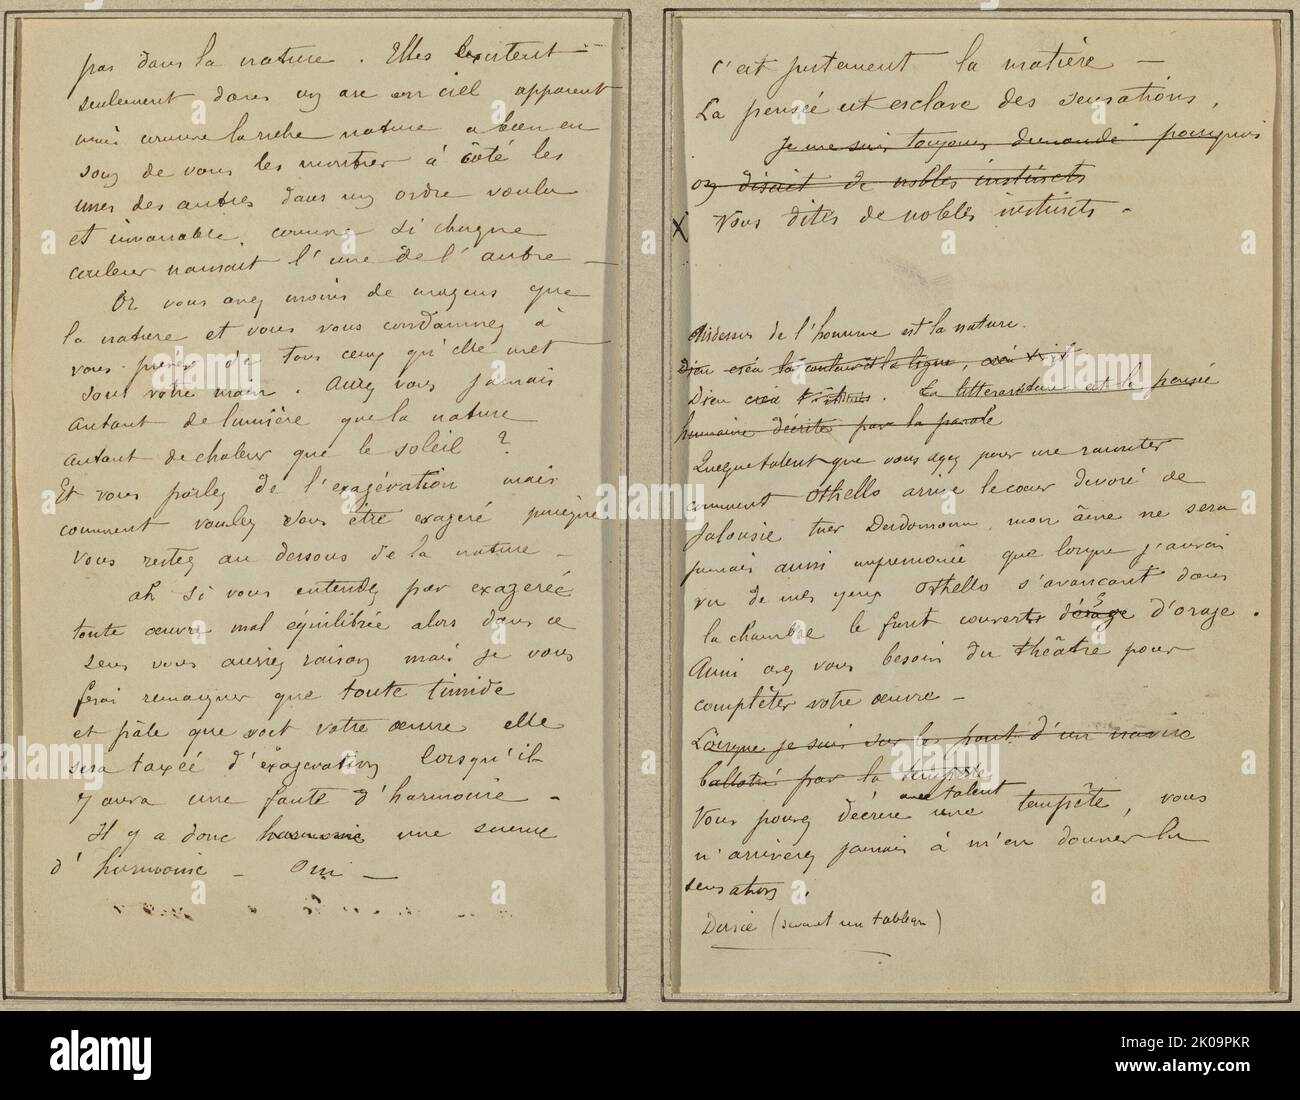 pas dans la nature. Elles existent
seulement dans un arc en ciel apparent
mais comme la riche nature a bien eu
soin de vous les montrer à côté les
unes des autres dans un ordre voulu
et invariable, comme si chaque
couleur naissait l'une de l'autre —
Or vous avez moins de moyens que
la nature et vous vous condamnez à
vous priver de tous ceux qu'elle met
sous votre main. Aurez vous jamais
autant de lumière que la nature
autant de chaleur que le soleil ?
Et vous parlez de l'exagération mais
comment voulez vous être exagéré puisque
vous restez au dessous de la nature —
Ah si vous entendez par exagérée
toute œuvre mal équilibrée alors dans ce
sens vous auriez raison mais je vous
ferai remarquer que toute timide
et pâle que soit votre œuvre elle
sera taxée d'exagération lorsqu'il
y aura une faute d'harmonie —
Il y a donc harmonie une science
d'harmonie — Oui —
c'est justement la matière —
La pensée est esclave des sensations,
Je me suis toujours demandé pourquoi
on disait de nobles instincts
X Vous dites de nobles instincts -
Au dessus de l'homme est la nature.
Dieu créa la couleur et la ligne, créa
Dieu créa. La littérature est la pensée
humaine décrite par la parole
Quelque talent que vous ayez pour me raconter
comment Othello arrive le cœur dévoré de
jalousie tuer Desdemona, mon âme ne sera
jamais aussi impressionée que lorsque j'aurai
vu de mes yeux Othello s'avançant dans
la chambre le front couvert d'orage.
Aussi avez vous besoin du théâtre pour
complêter votre œuvre —
Lorsque je suis sur le pont d'un navire
ballotté par la tempête
avec talent
Vous pouvez décrire une tempête, vous
n'arriverez jamais à m'en donner la
sensation.
(devant un tableau)
alamy
Image ID: 2K09PKR
www.alamy.com